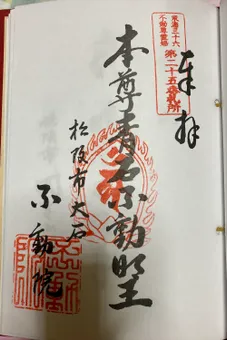 奉拝
東海三十六
不動尊霊場
第二十五番札所
本尊青石不動明王
松阪市大石
不動院